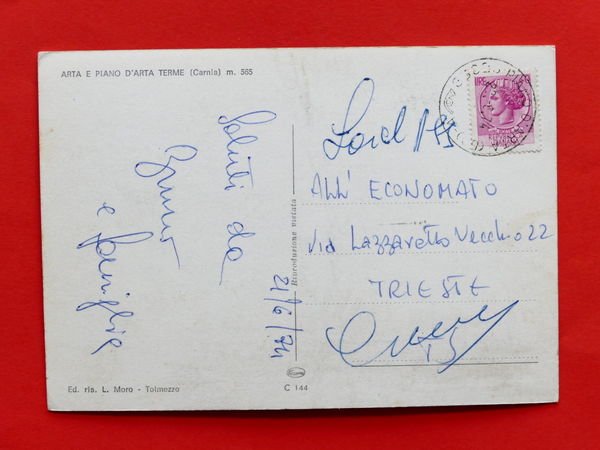 ARTA E PIANO D'ARTA TERME (Carnia) m. 565
Saluti da
Bruno
e famiglia
21/6/74
Riproduzione vietata
ALL' ECONOMATO
Via Lazzaretto Vecchio 22
TRIESTE
LIRE
Ed. ris. L. Moro - Tolmezzo
C 144